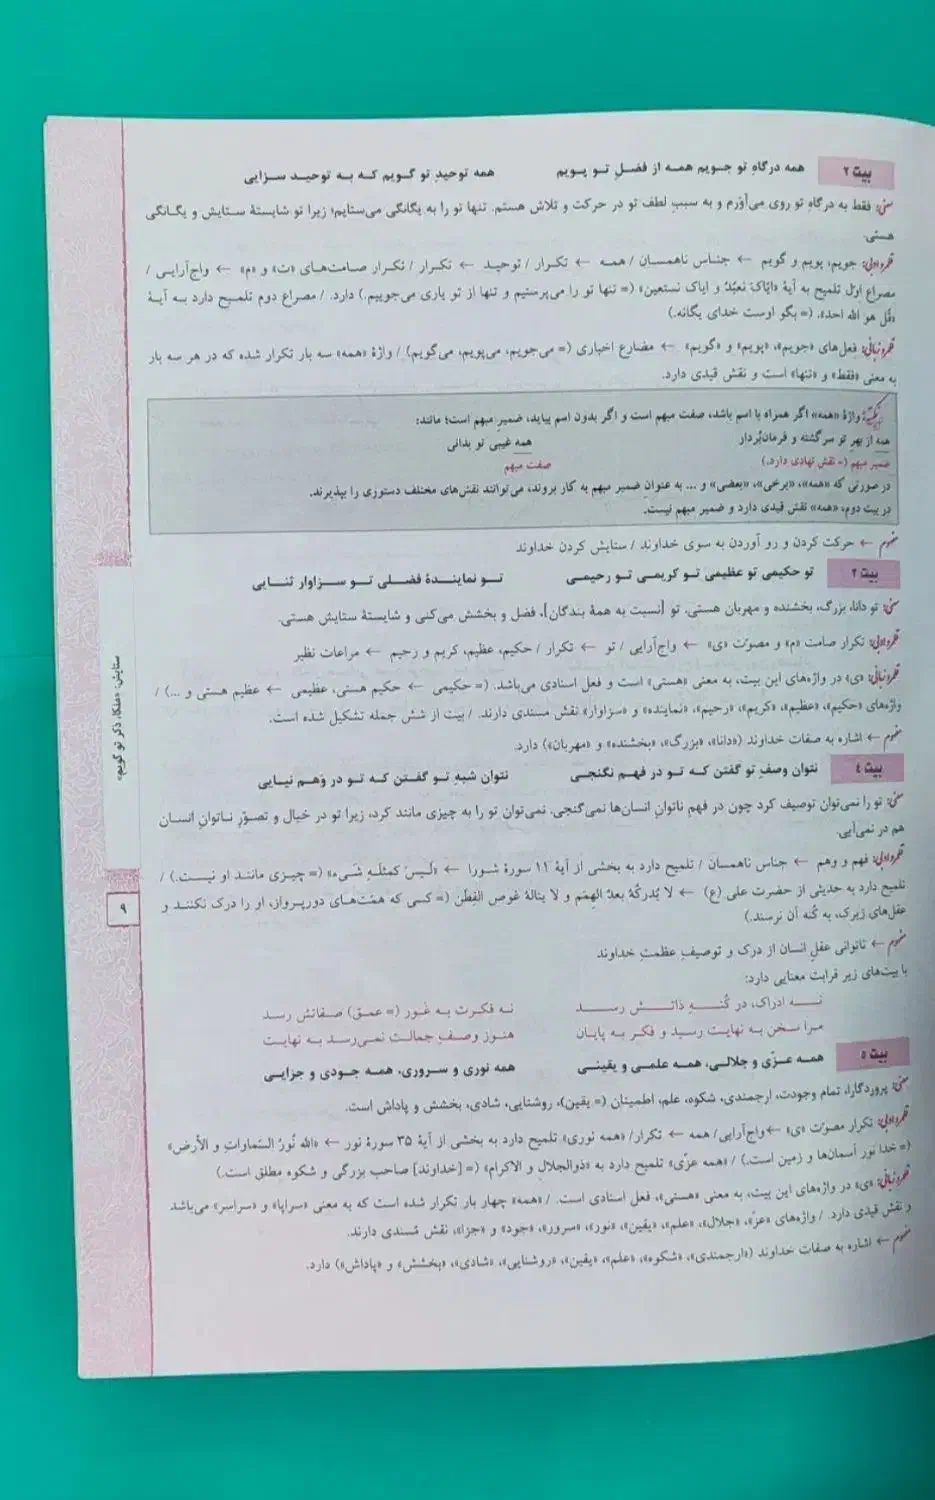 بیت ۲ همه درگاهِ تو جویم همه از فضلِ تو پویم همه توحیدِ تو گویم که به توحید سزایی
معنی: فقط به درگاهِ تو روی می‌آوَرم و به سببِ لطف تو در حرکت و تلاش هستم. تنها تو را به یگانگی می‌ستایم؛ زیرا تو شایستهٔ ستایش و یگانگی
هستی.
قلمرو ادبی: جویم، پویم و گویم ← جناس ناهمسان / همه ← تکرار / توحید ← تکرار / تکرار صامت‌های «ت» و «م» ← واج‌آرایی /
مصراع اوّل تلمیح به آیهٔ «ایّاکَ نَعبُدُ و ایاک نستعین» (= تنها تو را می‌پرستیم و تنها از تو یاری می‌جوییم.) دارد. / مصراع دوم تلمیح دارد به آیهٔ
«قُل هو الله احد». (= بگو اوست خدای یگانه.)
قلمرو زبانی: فعل‌های «جویم»، «پویم» و «گویم» ← مضارع اخباری (= می‌جویم، می‌پویم، می‌گویم) / واژهٔ «همه» سه بار تکرار شده که در هر سه بار
به معنی «فقط» و «تنها» است و نقش قیدی دارد.
نکته: واژهٔ «همه» اگر همراه با اسم باشد، صفت مبهم است و اگر بدون اسم بیاید، ضمیرِ مبهم است؛ مانند:
همه از بهرِ تو سرگشته و فرمان‌بُردار همه غیبی تو بدانی
ضمیر مبهم (= نقش نهادی دارد.) صفت مبهم
در صورتی که «همه»، «برخی»، «بعضی» و ... به عنوانِ ضمیر مبهم به کار بروند، می‌توانند نقش‌های مختلف دستوری را بپذیرند.
در بیت دوم، «همه» نقش قیدی دارد و ضمیر مبهم نیست.
مفهوم ← حرکت کردن و رو آوردن به سوی خداوند / ستایش کردن خداوند
بیت ۳ تو حکیمی تو عظیمی تو کریمی تو رحیمی تو نمایندهٔ فضلی تو سزاوار ثنایی
معنی: تو دانا، بزرگ، بخشنده و مهربان هستی. تو [نسبت به همهٔ بندگان]، فضل و بخشش می‌کنی و شایستهٔ ستایش هستی.
قلمرو ادبی: تکرار صامت «م» و مصوّت «ی» ← واج‌آرایی / تو ← تکرار / حکیم، عظیم، کریم و رحیم ← مراعات نظیر
قلمرو زبانی: «ی» در واژه‌های این بیت، به معنی «هستی» است و فعل اسنادی می‌باشد. (= حکیمی ← حکیم هستی، عظیمی ← عظیم هستی و ...) /
واژه‌های «حکیم»، «عظیم»، «کریم»، «رحیم»، «نماینده» و «سزاوار» نقش مسندی دارند. / بیت از شش جمله تشکیل شده است.
مفهوم ← اشاره به صفات خداوند («دانا»، «بزرگ»، «بخشنده» و «مهربان») دارد.
بیت ٤ نتوان وصفِ تو گفتن که تو در فهم نگنجی نتوان شبهِ تو گفتن که تو در وَهم نیایی
معنی: تو را نمی‌توان توصیف کرد چون در فهمِ ناتوانِ انسان‌ها نمی‌گنجی. نمی‌توان تو را به چیزی مانند کرد، زیرا تو در خیال و تصوّرِ ناتوانِ انسان
هم در نمی‌آیی.
قلمرو ادبی: فهم و وهم ← جناس ناهمسان / تلمیح دارد به بخشی از آیهٔ ۱۱ سورهٔ شورا ← «لَیسَ کمثلَهِ شَیء» (= چیزی مانند او نیست.) /
تلمیح دارد به حدیثی از حضرت علی (ع) ← لا یُدرکُهُ بعدُ الهِمَم و لا ینالهُ غوص الفِطَن (= کسی که همّت‌های دورپرواز، او را درک نکنند و
عقل‌های زیرک، به کُنه آن نرسند.)
مفهوم ← ناتوانی عقلِ انسان از درک و توصیفِ عظمتِ خداوند
با بیت‌های زیر قرابت معنایی دارد:
نه ادراک، در کُنهِ ذاتش رسد نه فکرت به غَور (= عمق) صفاتش رسد
مرا سخن به نهایت رسید و فکر به پایان هنوز وصفِ جمالت نمی‌رسد به نهایت
بیت ٥ همه عزّی و جلالی، همه علمی و یقینی همه نوری و سروری، همه جودی و جزایی
معنی: پروردگارا، تمام وجودت، ارجمندی، شکوه، علم، اطمینان (= یقین)، روشنایی، شادی، بخشش و پاداش است.
قلمرو ادبی: تکرار مصوّت «ی» ← واج‌آرایی/ همه ← تکرار/ «همه نوری» تلمیح دارد به بخشی از آیهٔ ۳۵ سورهٔ نور ← «الله نُورُ السّماواتِ و الأرض»
(= خدا نور آسمان‌ها و زمین است.) / «همه عزّی» تلمیح دارد به «ذوالجلال و الاکرام» (= [خداوند] صاحب بزرگی و شکوه مطلق است.)
قلمرو زبانی: «ی» در واژه‌های این بیت، به معنی «هستی»، فعل اسنادی است. / «همه» چهار بار تکرار شده است که به معنی «سراپا» و «سراسر» می‌باشد
و نقش قیدی دارد. / واژه‌های «عزّ»، «جلال»، «علم»، «یقین»، «نور»، «سرور»، «جود» و «جزا»، نقش مُسندی دارند.
مفهوم ← اشاره به صفات خداوند («ارجمندی»، «شکوه»، «علم»، «یقین»، «روشنایی»، «شادی»، «بخشش» و «پاداش») دارد.
ستایش: «ملکا، ذکر تو گویم»
۹